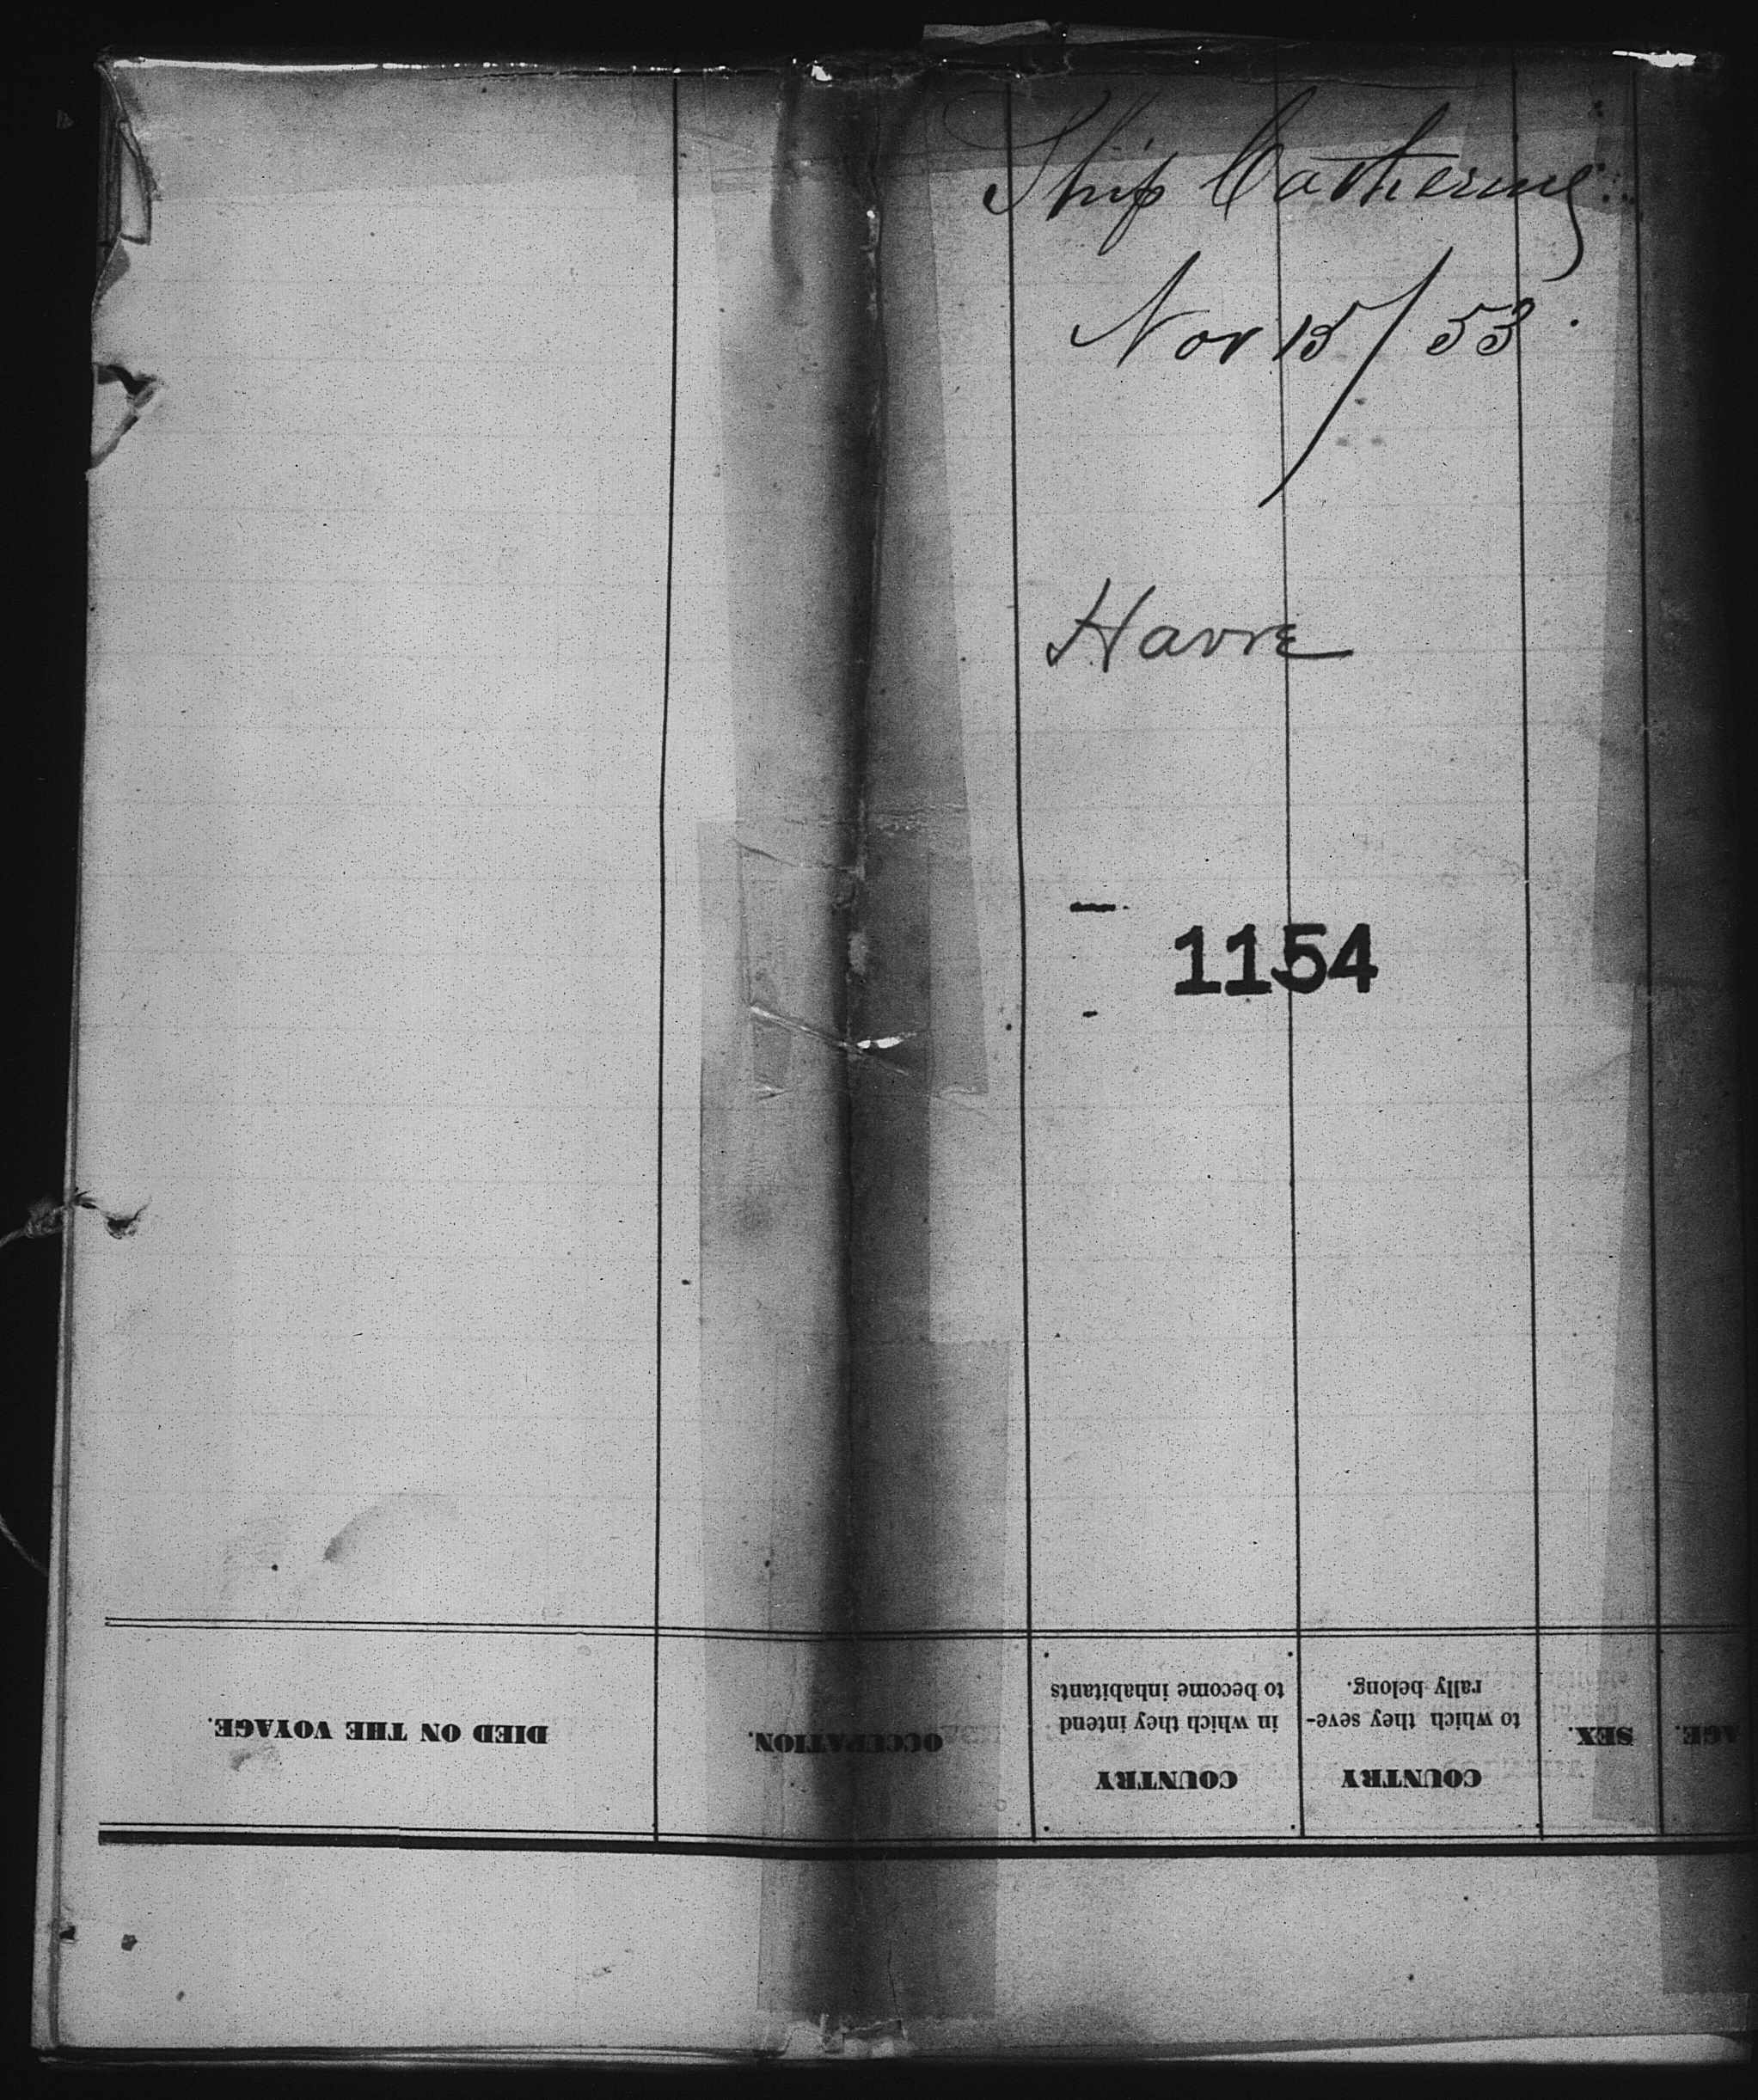 Ship Catherine
Nov 15/53.
Havre
1154
DIED ON THE VOYAGE.
OCCUPATION.
COUNTRY
in which they intend
to become inhabitants
COUNTRY
to which they seve-
rally belong.
SEX.
AGE.